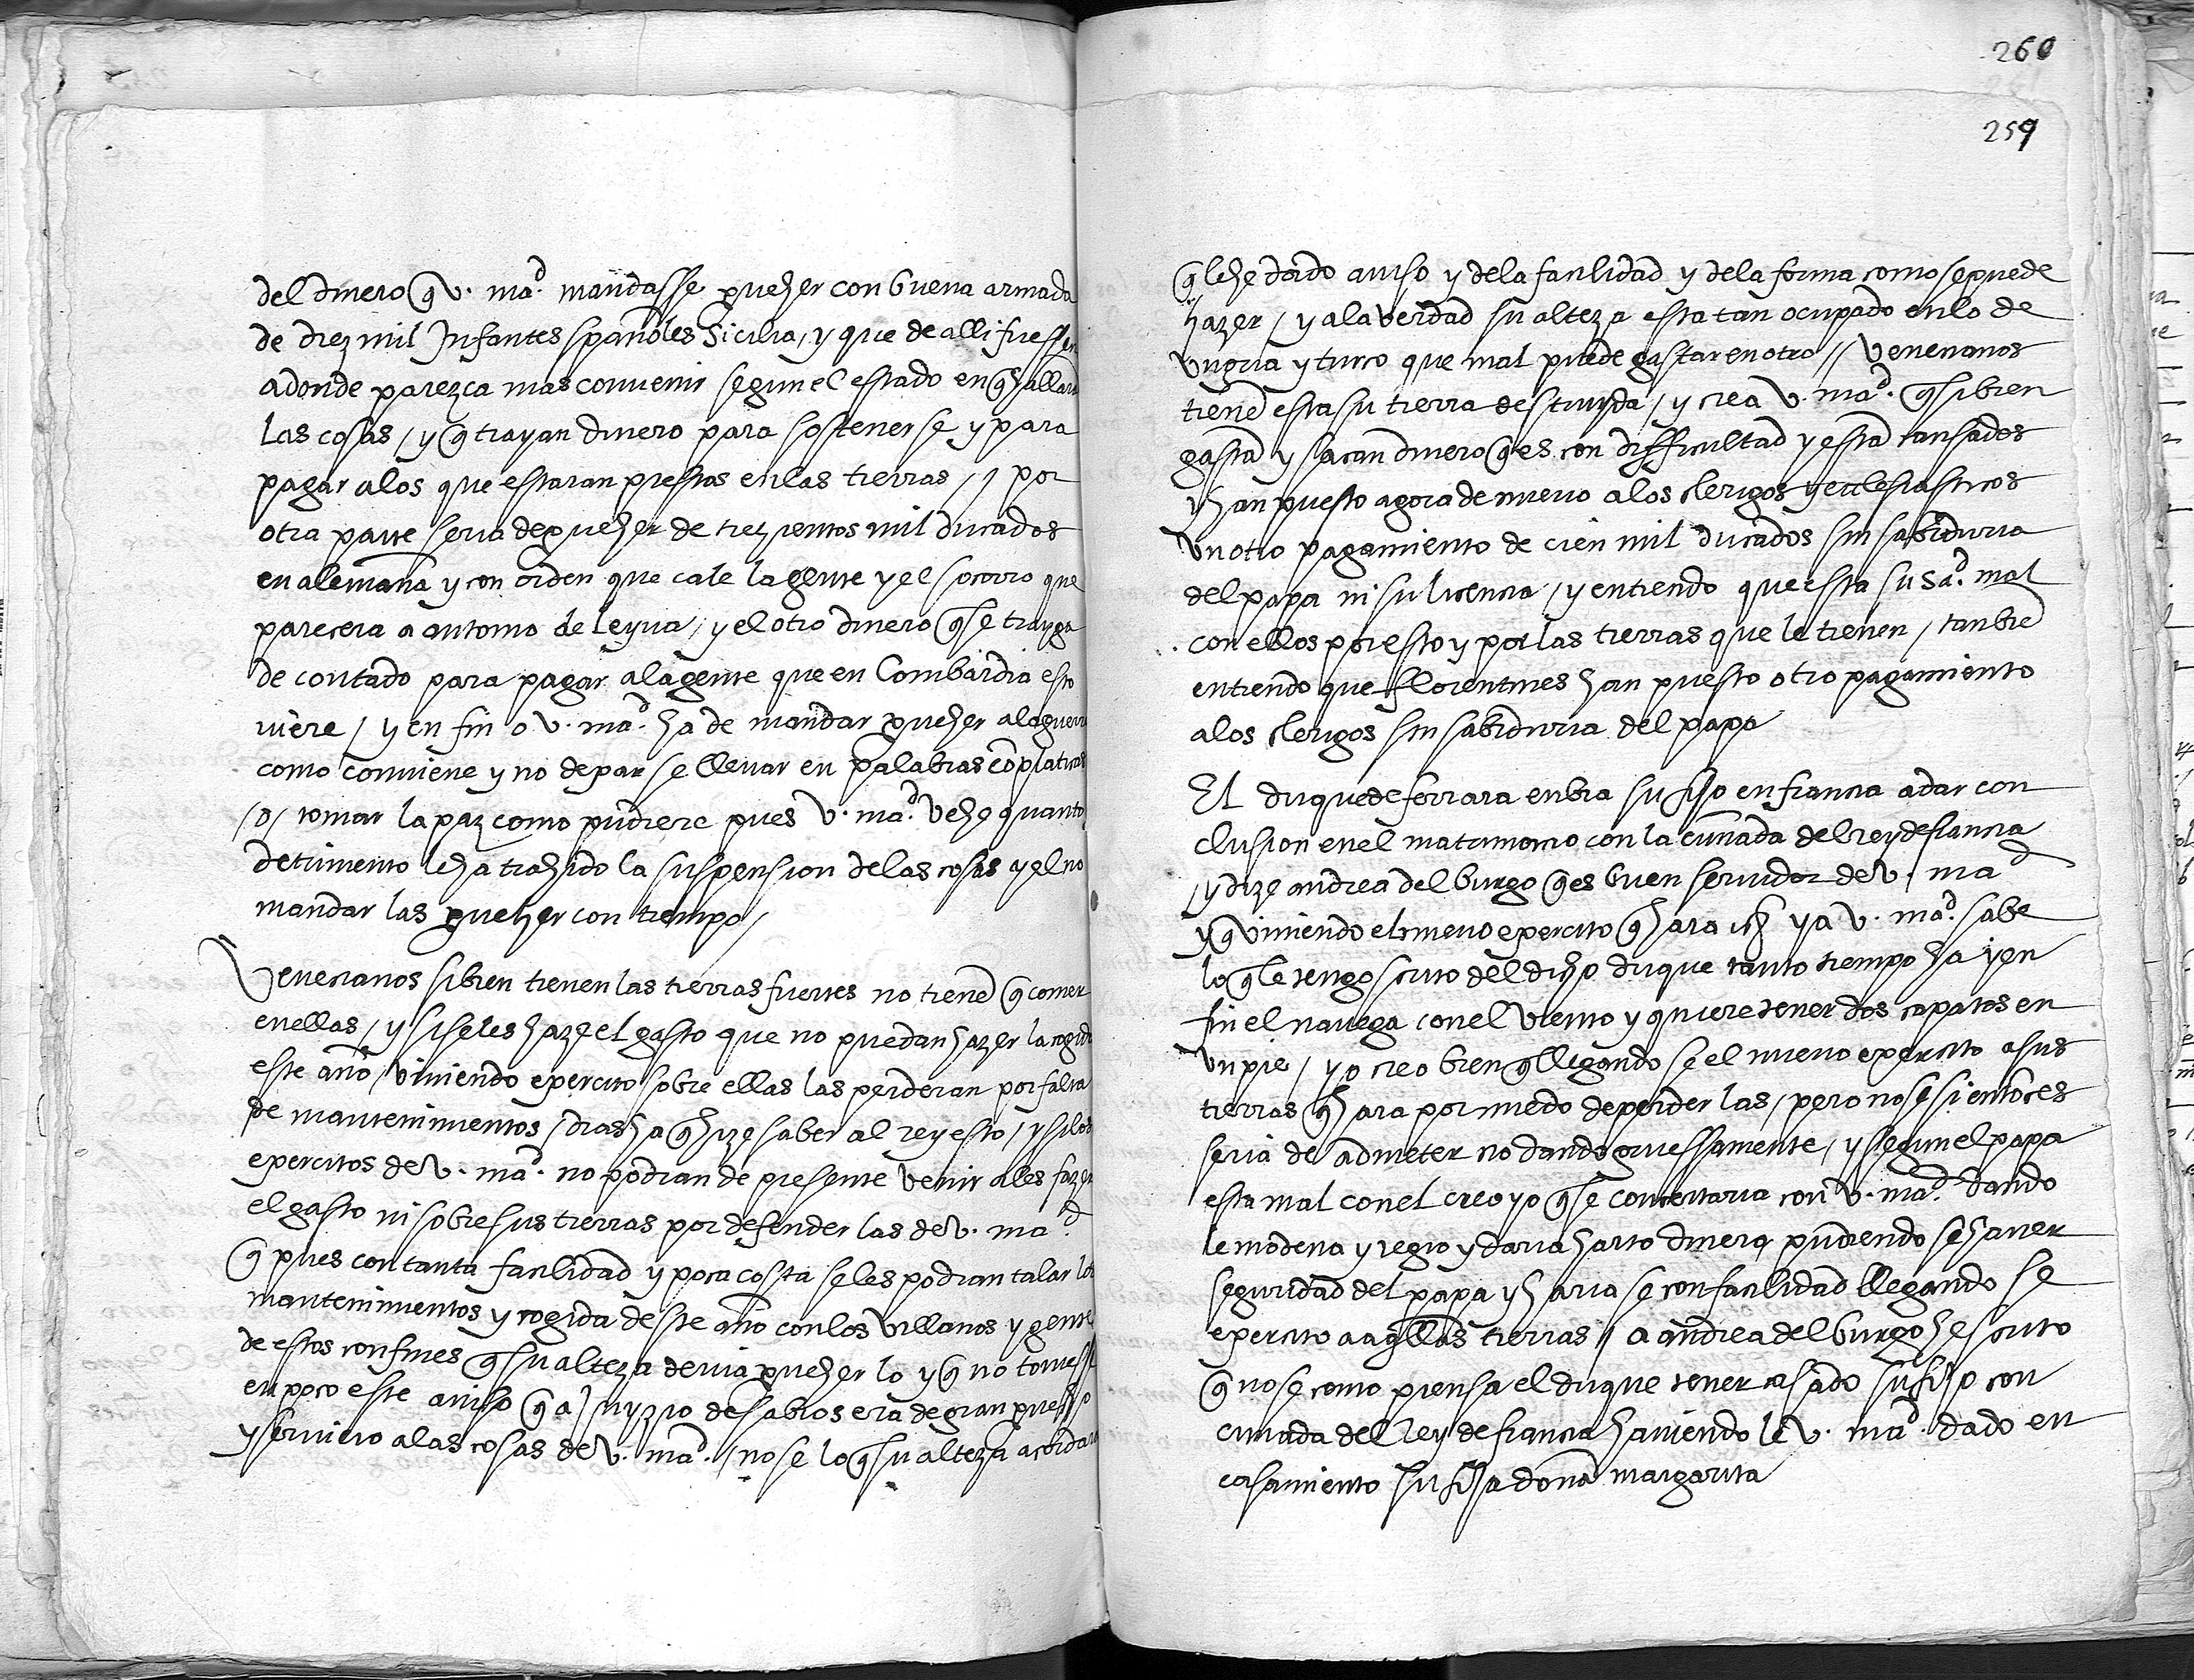 del dinero q̃ v. mad. mandasse prueher con buena armada
de diez mil Infantes spañoles Sicilia / y que de alli fuessen
adonde parezca mas convenir segun el estado en q̃ hallara
las cosas / y q̃ trayan dinero para sostenerse y para
pagar a los que estaran prestos en las tierras / y por
otra parte seria de prueher de trezientos mil ducados
en alemaña y con orden que cale la gente y el socorro que
parecera a antonio de leyva / y el otro dinero q̃ se trayga
de contado para pagar a la gente que en Lombardia esto
viere / y en fin o v. mad. ha de mandar prueher a la guerra
como conviene y no dexarse llevar en palabras e platicas
/o/ tomar la paz como pudiere pues v. mad. vehe quanto
detrimento le ha trahido la suspension de las cosas y el no
mandar las prueher con tiempo /
Venecianos si bien tienen las tierras fuertes no tienẽ q̃ comer
en ellas / y si se les haze el gasto que no puedan hazer la cogida
este año / viniendo exercito sobre ellas las perderan por falta
de mantenimientos / dias ha q̃ hize saber al rey esto / y si los
exercitos de v. mad. no podran de presente venir a les fazer
el gasto ni sobre sus tierras por defender las de v. mad.
q̃ pues con tanta facilidad y poca costa se les podian talar los
mantenimientos y cogida deste año con los villanos y gente
de estos confines q̃ su alteza devia prueher lo y q̃ no tomesse
en poco este aviso q̃ a juyzio de sabios era de gran
y servicio a las cosas de v. mad. / no se lo q̃ su alteza acordara
260
259
q̃ le he dado aviso y de la facilidad y de la forma como se puede
hazer / y a la verdad su alteza esta tan ocupado en lo de
Vngria y turco que mal puede gastar en otro // Venecianos
tienẽ esta su tierra destruyda / y crea v. mad. q̃ si bien
gastã y sacan dinero q̃ es con difficultad y estã cansados
y han puesto agora de nuevo a los clerigos y ecclesiasticos
vn otro pagamiento de cien mil ducados sin sabiduria
del papa ni su licencia / y entiendo que esta su sad. mal
con ellos por esto y por las tierras que le tienen / tanbiẽ
entiendo que florentines han puesto otro pagamiento
a los clerigos sin sabiduria del papa
El duque de ferrara enbia su fijo en francia a dar con
clusion en el matrimonio con la cuñada del rey de francia
/ y dize andrea del burgo q̃ es buen servidor de v. mad
y q̃ viniendo el nuevo exercito q̃ hara ya v. mad. sabe
lo q̃ le tengo scrito del dicho duque tanto tiempo ha y en
fin el navega con el viento y quiere tener dos çapatos en
vn pie / yo creo bien q̃ llegando se el nuevo exercito a sus
tierras q̃ hara por miedo de perder las / pero no se si entõces
seria de admeter no dando gruessamente / y segun el papa
esta mal con el creo yo q̃ se concertaria con v. mad. dando
le modena y regio y daria harto dinero pudiendo se haver
seguridad del papa y haria se con facilidad llegando se
exercito a aq̃llas tierras / a andrea del burgo he scrito
q̃ no se como piensa el duque tener casado su fijo con
cuñada del rey de francia haviendo le v. mad. dado en
casamiento su fija doña margarita